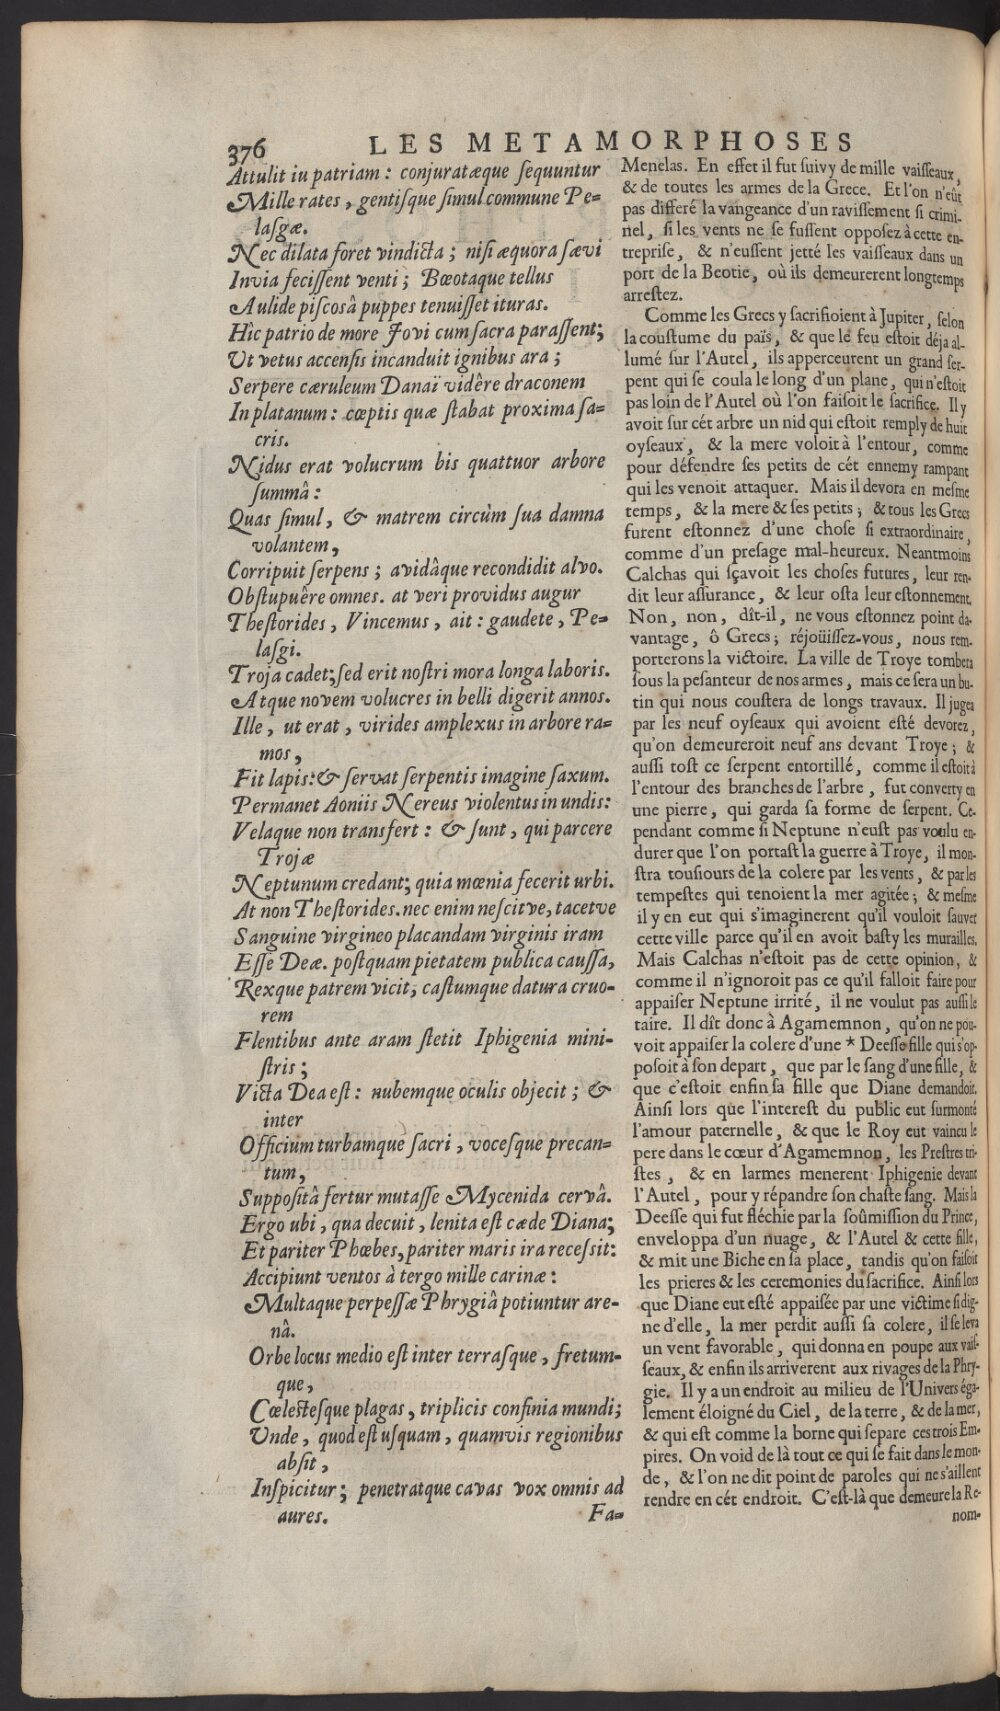 376 LES METAMORPHOSES
Attulit iu patriam: conjuratæque ſequuntur
Mille rates, gentiſque ſimul commune Pe-
laſgæ.
Nec dilata foret vindicta; niſi æquora ſævi
Invia feciſſent venti; Bœotaque tellus
Aulide piſcosâ puppes tenuiſſet ituras.
Hîc patrio de more Jovi cum ſacra paraſſent;
Ut vetus accenſis incanduit ignibus ara;
Serpere cæruleum Danaï vidêre draconem
In platanum: cœptis quæ ſtabat proxima ſa-
cris.
Nidus erat volucrum bis quattuor arbore
ſummâ:
Quas ſimul, & matrem circùm ſua damna
volantem,
Corripuit ſerpens; avidâque recondidit alvo.
Obſtupuêre omnes. at veri providus augur
Theſtorides, Vincemus, ait: gaudete, Pe-
laſgi.
Troja cadet; ſed erit noſtri mora longa laboris.
Atque novem volucres in belli digerit annos.
Ille, ut erat, virides amplexus in arbore ra-
mos,
Fit lapis: & ſervat ſerpentis imagine ſaxum.
Permanet Aoniis Nereus violentus in undis:
Velaque non transfert: & ſunt, qui parcere
Trojæ
Neptunum credant; quia mœnia fecerit urbi.
At non Theſtorides. nec enim neſcitve, tacetve
Sanguine virgineo placandam virginis iram
Eſſe Deæ. poſtquam pietatem publica cauſſa,
Rexque patrem vicit; caſtumque datura cruo-
rem
Flentibus ante aram ſtetit Iphigenia mini-
ſtris;
Victa Dea eſt: nubemque oculis objecit; &
inter
Officium turbamque ſacri, voceſque precan-
tum,
Suppoſitâ fertur mutaſſe Mycenida cervâ.
Ergo ubi, qua decuit, lenita eſt cæde Diana;
Et pariter Phœbes, pariter maris ira receſsit:
Accipiunt ventos à tergo mille carinæ:
Multaque perpeſſæ Phrygiâ potiuntur are-
nâ.
Orbe locus medio eſt inter terraſque, fretum-
que,
Cœleſteſque plagas, triplicis confinia mundi;
Unde, quod eſt uſquam, quamvis regionibus
abſit,
Inſpicitur; penetratque cavas vox omnis ad
aures.
Fa-
Menelas. En effet il fut ſuivy de mille vaiſſeaux,
& de toutes les armes de la Grece. Et l'on n'eût
pas differé la vangeance d'un raviſſement ſi crimi-
nel, ſi les vents ne ſe fuſſent oppoſez à cette en-
trepriſe, & n'euſſent jetté les vaiſſeaux dans un
port de la Beotie, où ils demeurerent longtemps
arreſtez.
Comme les Grecs y ſacrifioient à Jupiter, ſelon
la couſtume du païs, & que le feu eſtoit déja al-
lumé ſur l'Autel, ils apperceurent un grand ſer-
pent qui ſe coula le long d'un plane, qui n'eſtoit
pas loin de l'Autel où l'on faiſoit le ſacrifice. Il y
avoit ſur cét arbre un nid qui eſtoit remply de huit
oyſeaux, & la mere voloit à l'entour, comme
pour défendre ſes petits de cét ennemy rampant
qui les venoit attaquer. Mais il devora en meſme
temps, & la mere & ſes petits; & tous les Grecs
furent eſtonnez d'une choſe ſi extraordinaire,
comme d'un preſage mal-heureux. Neantmoins
Calchas qui ſçavoit les choſes futures, leur ren-
dit leur aſſurance, & leur oſta leur eſtonnement.
Non, non, dît-il, ne vous eſtonnez point da-
vantage, ô Grecs; réjoüiſſez-vous, nous rem-
porterons la victoire. La ville de Troye tombera
ſous la peſanteur de nos armes, mais ce ſera un bu-
tin qui nous couſtera de longs travaux. Il jugea
par les neuf oyſeaux qui avoient eſté devorez,
qu'on demeureroit neuf ans devant Troye; &
auſſi toſt ce ſerpent entortillé, comme il eſtoit à
l'entour des branches de l'arbre, fut converty en
une pierre, qui garda ſa forme de ſerpent. Ce-
pendant comme ſi Neptune n'euſt pas voulu en-
durer que l'on portaſt la guerre à Troye, il mon-
ſtra touſiours de la colere par les vents, & par les
tempeſtes qui tenoient la mer agitée; & meſme
il y en eut qui s'imaginerent qu'il vouloit ſauver
cette ville parce qu'il en avoit baſty les murailles.
Mais Calchas n'eſtoit pas de cette opinion, &
comme il n'ignoroit pas ce qu'il falloit faire pour
appaiſer Neptune irrité, il ne voulut pas auſſi le
taire. Il dît donc à Agamemnon, qu'on ne pou-
voit appaiſer la colere d'une * Deeſſe fille qui s'op-
poſoit à ſon depart, que par le ſang d'une fille, &
que c'eſtoit enfin ſa fille que Diane demandoit.
Ainſi lors que l'intereſt du public eut ſurmonté
l'amour paternelle, & que le Roy eut vaincu le
pere dans le cœur d'Agamemnon, les Preſtres tri-
ſtes, & en larmes menerent Iphigenie devant
l'Autel, pour y répandre ſon chaſte ſang. Mais la
Deeſſe qui fut fléchie par la ſoûmiſſion du Prince,
enveloppa d'un nuage, & l'Autel & cette fille,
& mit une Biche en ſa place, tandis qu'on faiſoit
les prieres & les ceremonies du ſacrifice. Ainſi lors
que Diane eut eſté appaiſée par une victime ſi dig-
ne d'elle, la mer perdit auſſi ſa colere, il ſe leva
un vent favorable, qui donna en poupe aux vaiſ-
ſeaux, & enfin ils arriverent aux rivages de la Phry-
gie. Il y a un endroit au milieu de l'Univers éga-
lement éloigné du Ciel, de la terre, & de la mer,
& qui eſt comme la borne qui ſepare ces trois Em-
pires. On void de là tout ce qui ſe fait dans le mon-
de, & l'on ne dit point de paroles qui ne s'aillent
rendre en cét endroit. C'eſt-là que demeure la Re-
nom-